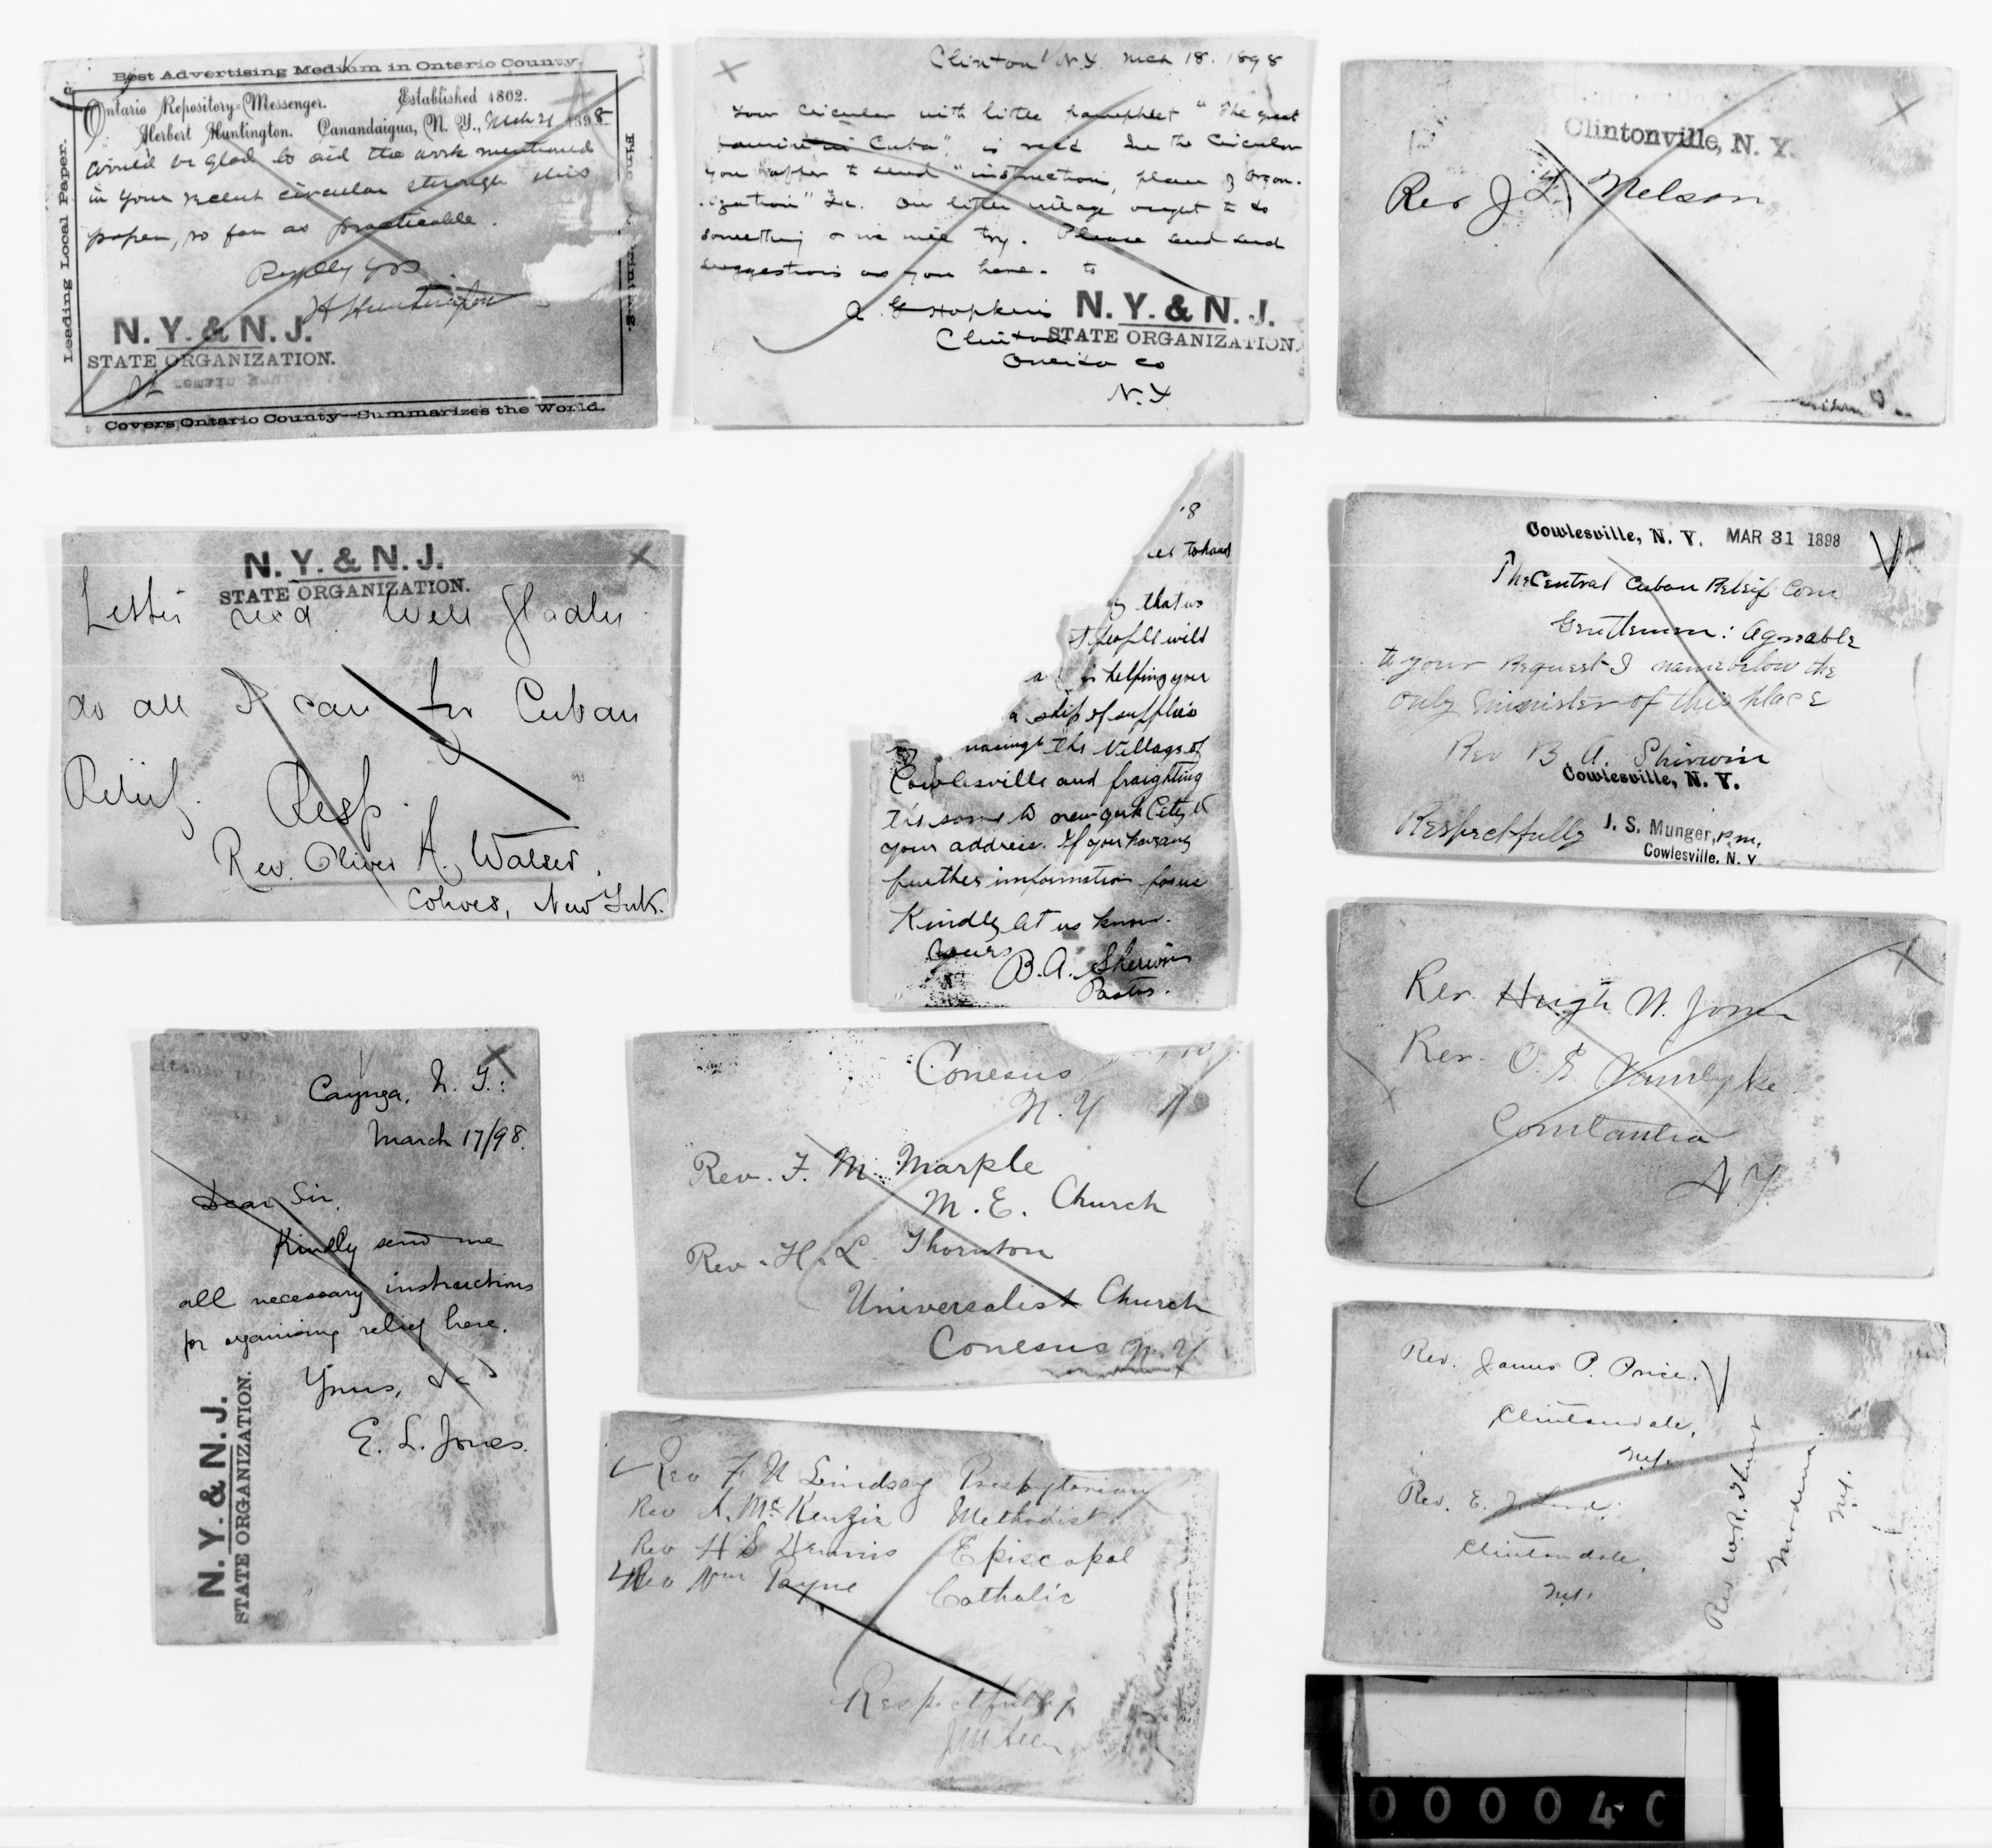 Best Advertising Medium in Ontario County.
Leading Local Paper.
Ontario Repository-Messenger. Established 1802.
Herbert Huntington. Canandaigua, N. Y., Mch 21 1898
Would be glad to aid the work mentioned
in your recent circular through this
paper, so far as practicable.
Resp'lly yrs
H Huntington
N. Y. & N. J.
STATE ORGANIZATION.
Covers Ontario County--Summarizes the World.
Clinton N.Y. Mch 18. 1898
Your circular with little pamphlet "The great
famine in Cuba", is recd In the Circular
you offer to send "instruction, plan of Organ-
ization" &c. Our little village ought to do
something & we will try. Please send such
suggestions as you have. to
A G Hopkins
Clinton
Oneida Co
N.Y.
N. Y. & N. J.
STATE ORGANIZATION.
Clintonville, N. Y.
Rev J. L. Nelson
N. Y. & N. J.
STATE ORGANIZATION.
Letter recd. Will gladly
do all I can for Cuban
Relief. Resp.
Rev. Oliver A. Walser.
Cohoes, New York.
'8
to hand
that us
people will
in helping your
a ship of supplies
the Village of
Cowlesville and fraighting
the same to new york City to
your address. If you have any
further information for us
Kindly let us know.
Yours
B. A. Sherwin
Pastor.
Cowlesville, N. Y. MAR 31 1898
The Central Cuban Releif Com
Gentlemen: Agreeable
to your Request I name below the
only minister of this place
Rev B. A. Shirwin
Cowlesville, N. Y.
Respectfully J. S. Munger, P.M.
Cowlesville, N. Y
Rev. Hugh W. Jones
Rev. O. E. Vandyke.
Constantia
N. Y
Cayuga, N. Y.:
March 17/98.
Dear Sir,
Kindly send me
all necessary instructions
for organising relief here.
Yours, &c
E. L. Jones.
N. Y. & N. J.
STATE ORGANIZATION.
Conesus
N. Y
Rev. F. M. Marple
M. E. Church
Rev. H. L. Thornton
Universalist Church
Conesus N. Y
Rev. James P. Price.
Clintondale,
N.Y.
Rev. E.
Clintondale,
N.Y.
Rev. W. R.
Modena.
N.Y.
Rev F N Lindsay Presbyterian
Rev A. McKenzie Methodist
Rev H S Dennis Episcopal
Rev Wm Payne Catholic
Respectfully
000040